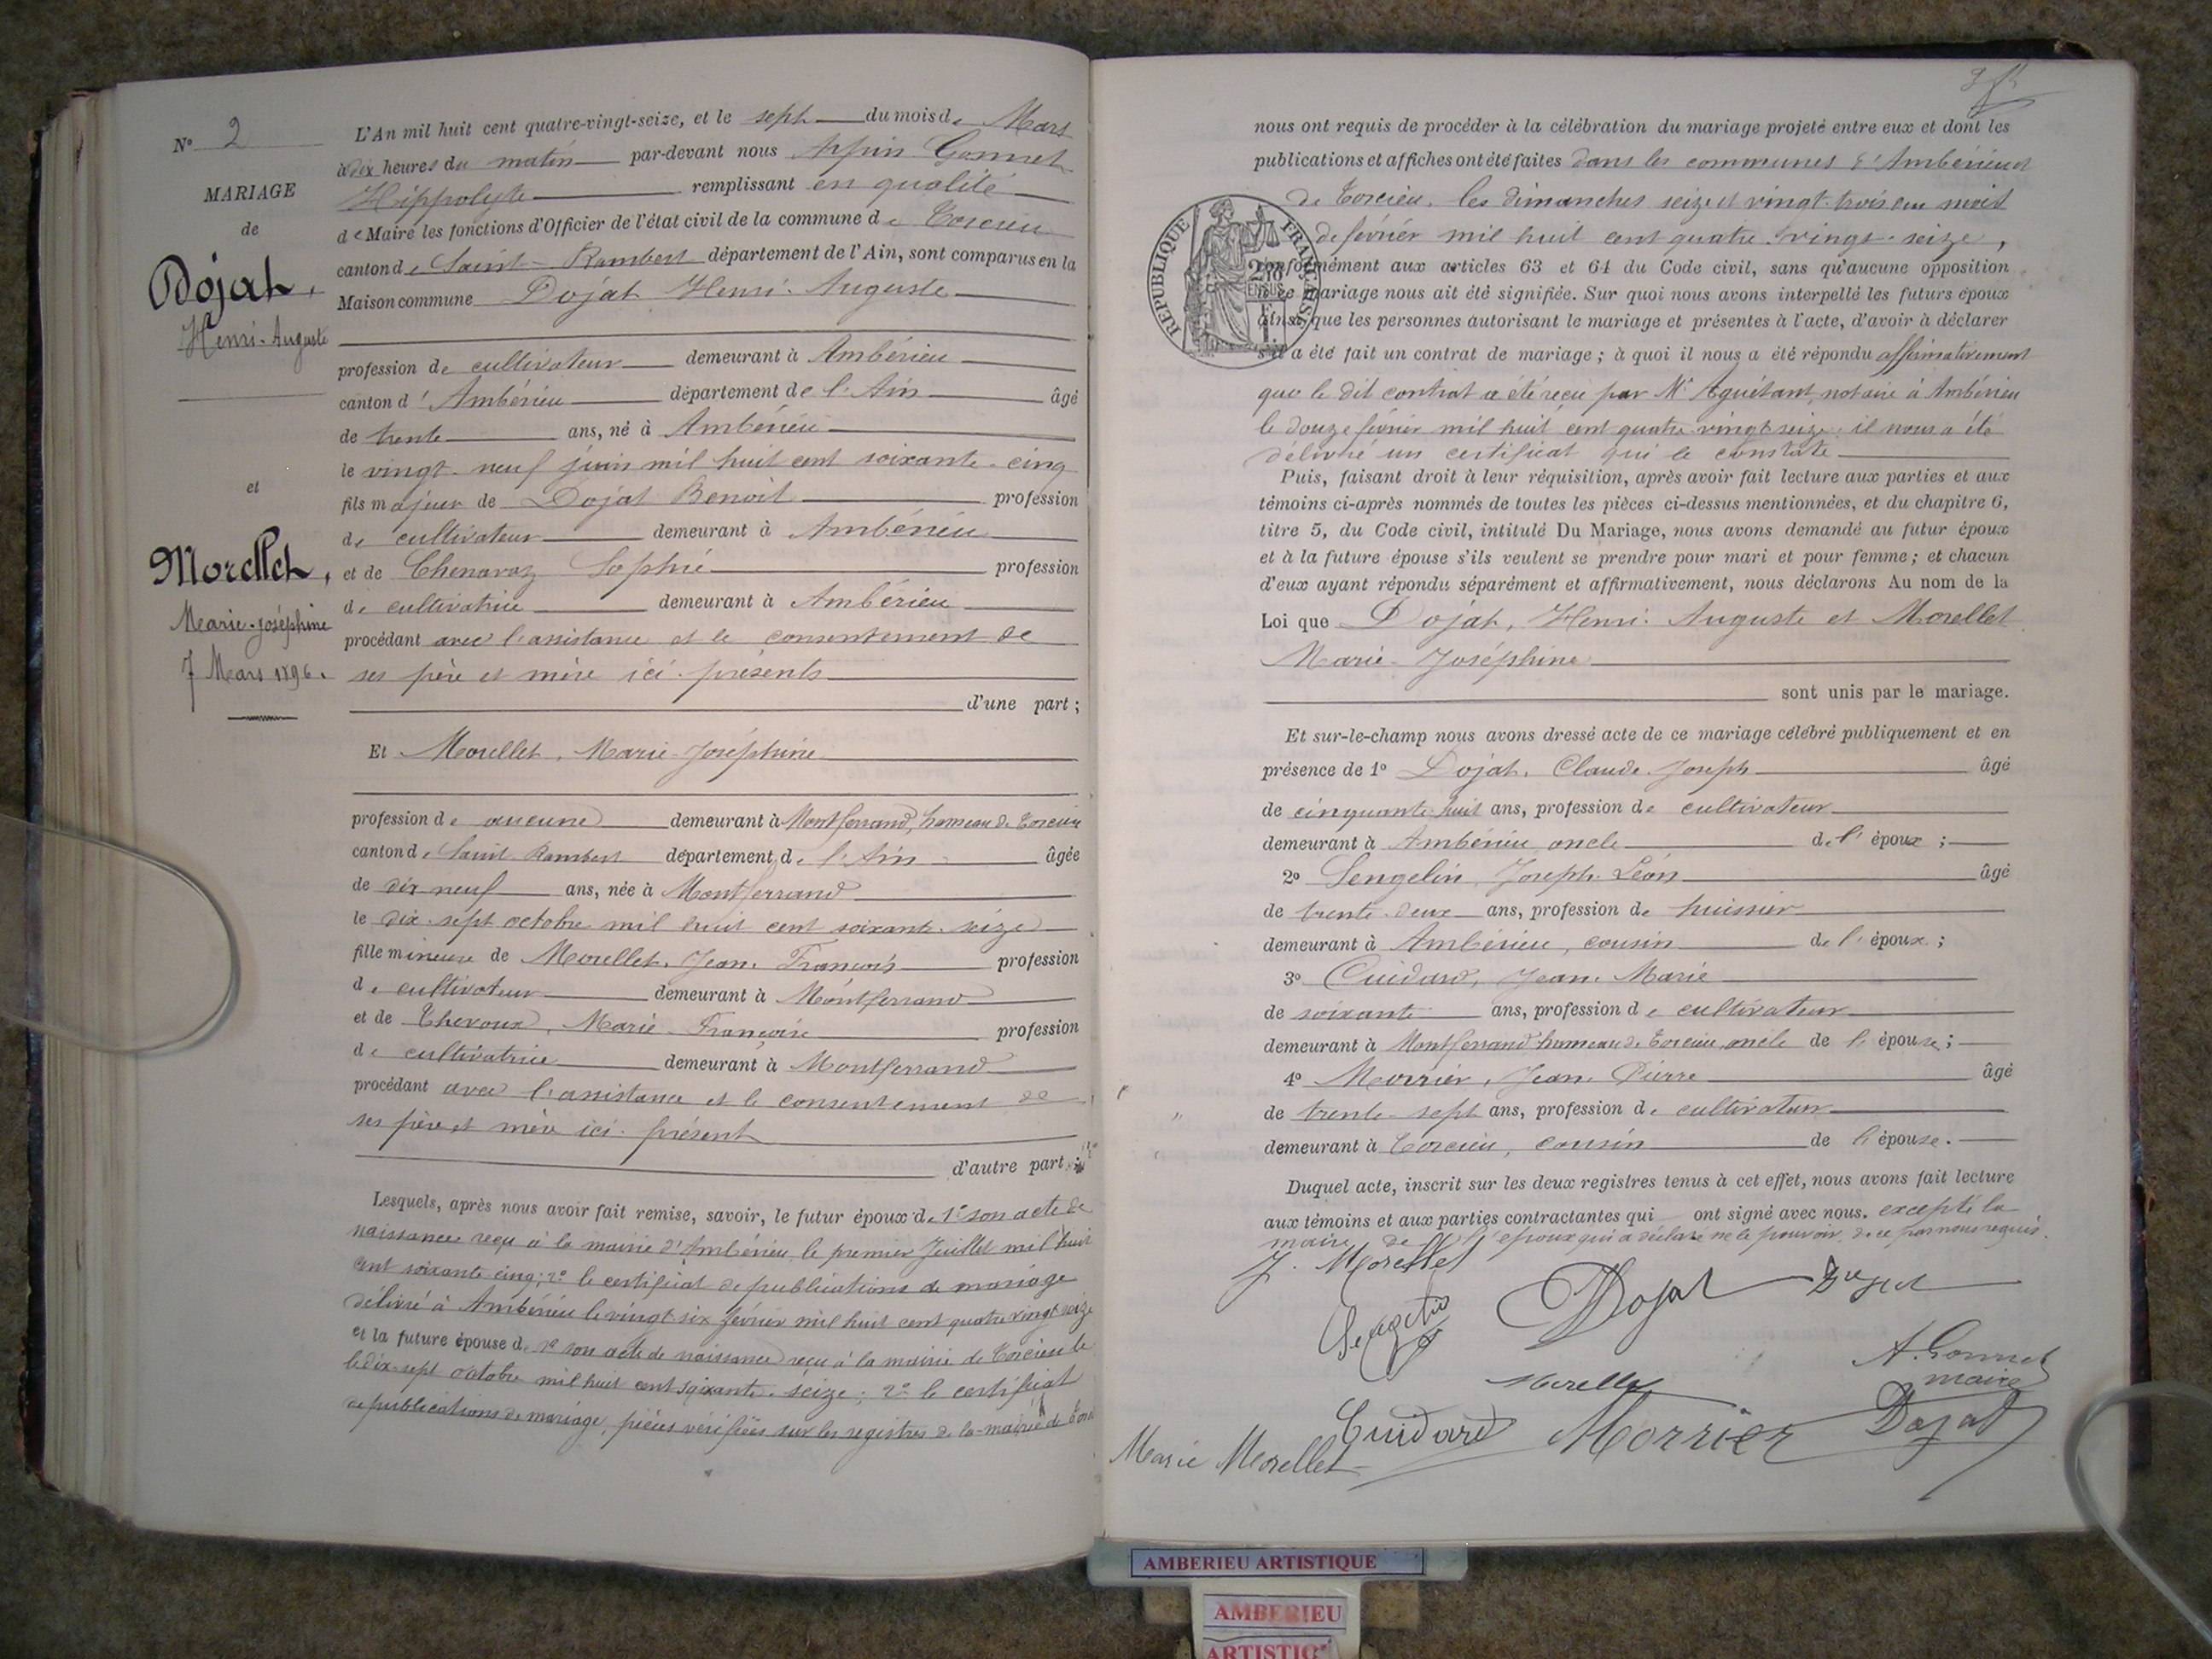 N° 2
MARIAGE
de
Dojat,
Henri-Auguste
et
Morellet,
Marie-Joséphine
7 Mars 1896.
L'An mil huit cent quatre-vingt-seize, et le sept du mois de Mars
à dix heures du matin par-devant nous Arpin Gonnet
Hippolyte remplissant en qualité
de Maire les fonctions d'Officier de l'état civil de la commune de Torcieu
canton de Saint-Rambert département de l'Ain, sont comparus en la
Maison commune Dojat Henri-Auguste
profession de cultivateur demeurant à Ambérieu
canton d'Ambérieu département de l'Ain âgé
de trente ans, né à Ambérieu
le vingt-neuf juin mil huit cent soixante-cinq
fils majeur de Dojat Benoit profession
de cultivateur demeurant à Ambérieu
et de Chenavaz Sophie profession
de cultivatrice demeurant à Ambérieu
procédant avec l'assistance et le consentement de
ses père et mère ici présents
d'une part ;
Et Morellet, Marie-Joséphine
profession de aucune demeurant à Montferrand, hameau de Torcieu
canton de Saint-Rambert département de l'Ain âgée
de dix neuf ans, née à Montferrand
le dix-sept octobre mil huit cent soixante-seize
fille mineure de Morellet, Jean-François profession
de cultivateur demeurant à Montferrand
et de Thevoux, Marie-Françoise profession
de cultivatrice demeurant à Montferrand
procédant avec l'assistance et le consentement de
ses père et mère ici présent
d'autre part ;
Lesquels, après nous avoir fait remise, savoir, le futur époux de 1° son acte de
naissance reçu à la mairie d'Ambérieu le premier Juillet mil huit
cent soixante cinq ; 2° le certificat de publications de mariage
délivré à Ambérieu le vingt-six février mil huit cent quatre vingt seize
et la future épouse de 1° son acte de naissance reçu à la mairie de Torcieu le
le dix-sept octobre mil huit cent soixante-seize ; 2° le certificat
de publications de mariage, pièces vérifiées sur les registres de la mairie de
nous ont requis de procéder à la célébration du mariage projeté entre eux et dont les
publications et affiches ont été faites dans les communes d'Ambérieu et
de Torcieu, les dimanches seize et vingt-trois du mois
de février mil huit cent quatre-vingt-seize,
conformément aux articles 63 et 64 du Code civil, sans qu'aucune opposition
à ce mariage nous ait été signifiée. Sur quoi nous avons interpellé les futurs époux
ainsi que les personnes autorisant le mariage et présentes à l'acte, d'avoir à déclarer
s'il a été fait un contrat de mariage ; à quoi il nous a été répondu affirmativement
que le dit contrat a été reçu par Me Aguétant, notaire à Ambérieu
le douze février mil huit cent quatre vingt seize ; il nous a été
délivré un certificat qui le constate
RÉPUBLIQUE FRANÇAISE
Puis, faisant droit à leur réquisition, après avoir fait lecture aux parties et aux
témoins ci-après nommés de toutes les pièces ci-dessus mentionnées, et du chapitre 6,
titre 5, du Code civil, intitulé Du Mariage, nous avons demandé au futur époux
et à la future épouse s'ils veulent se prendre pour mari et pour femme ; et chacun
d'eux ayant répondu séparément et affirmativement, nous déclarons Au nom de la
Loi que Dojat, Henri-Auguste et Morellet
Marie-Joséphine
sont unis par le mariage.
Et sur-le-champ nous avons dressé acte de ce mariage célébré publiquement et en
présence de 1° Dojat, Claude-Joseph âgé
de cinquante-huit ans, profession de cultivateur
demeurant à Ambérieu, oncle de l'époux ;
2° Sengelin, Joseph-Léon âgé
de trente-deux ans, profession de huissier
demeurant à Ambérieu, cousin de l'époux ;
3° Cuidard, Jean-Marie
de soixante ans, profession de cultivateur
demeurant à Montferrand hameau de Torcieu, oncle de l'épouse ;
4° Morrier, Jean-Pierre âgé
de trente-sept ans, profession de cultivateur
demeurant à Torcieu, cousin de l'épouse.
Duquel acte, inscrit sur les deux registres tenus à cet effet, nous avons fait lecture
aux témoins et aux parties contractantes qui ont signé avec nous. excepté la
mère de l'époux qui a déclaré ne le pouvoir, de ce par nous requis.
J. Morellet
Sengelin Dojat
A. Gonnet
maire
Morellet
Cuidard Morrier Dojat
Marie Morellet
AMBERIEU ARTISTIQUE
AMBERIEU
ARTISTIQ